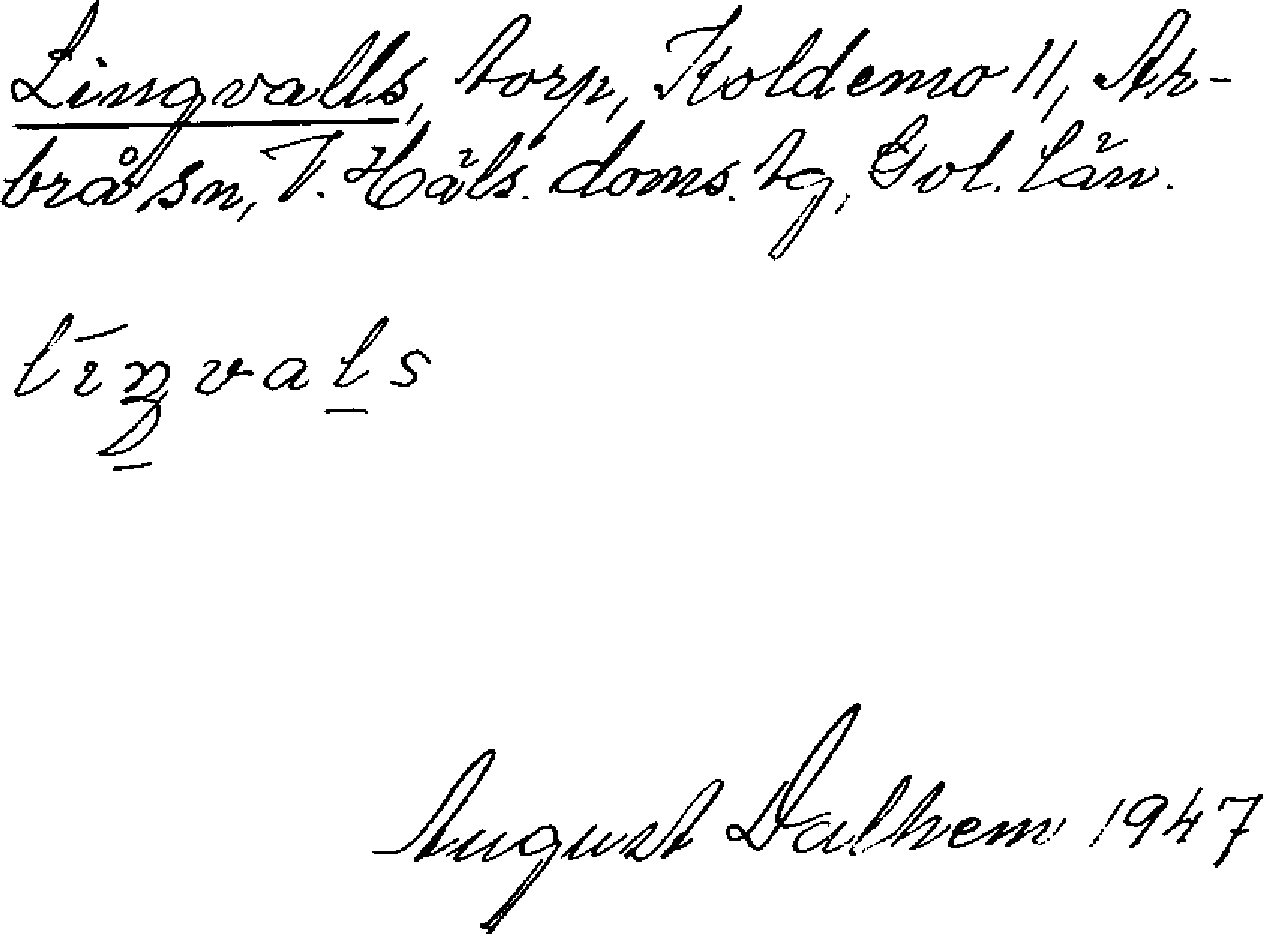 Lingvalls, torp, Koldemo 11, Ar-
brå sn, V. Häls. doms. tg, Gvl. län.
līŋvaḻs
August Dalhem 1947